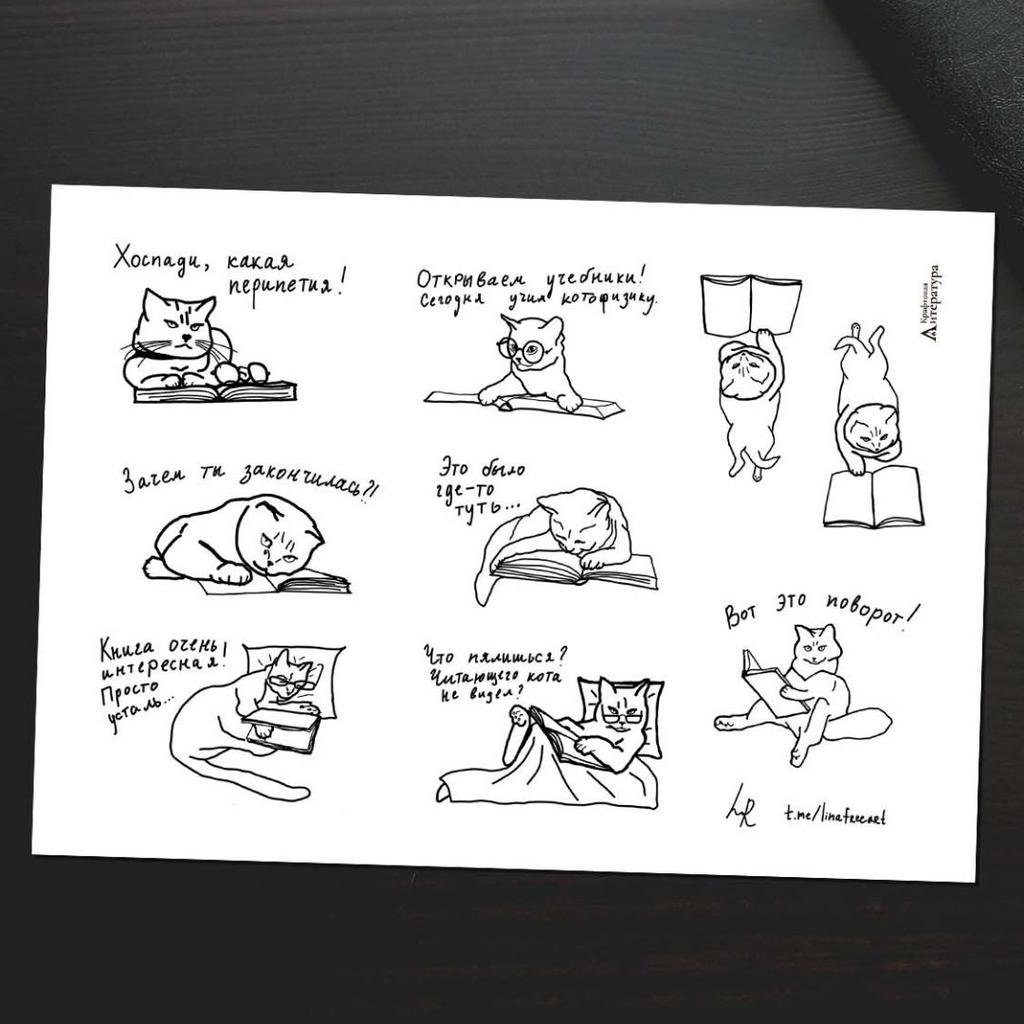 Хоспади, какая
перипетия!
Открываем учебники!
Сегодня учим котофизику.
Крафтовая
Литература
Зачем ты закончилась?!
Это было
где-то
туть...
Вот это поворот!
Книга очень
интересная!
Просто
усталь...
Что пялишься?
Читающего кота
не видел?
LR
t.me/linafreeart